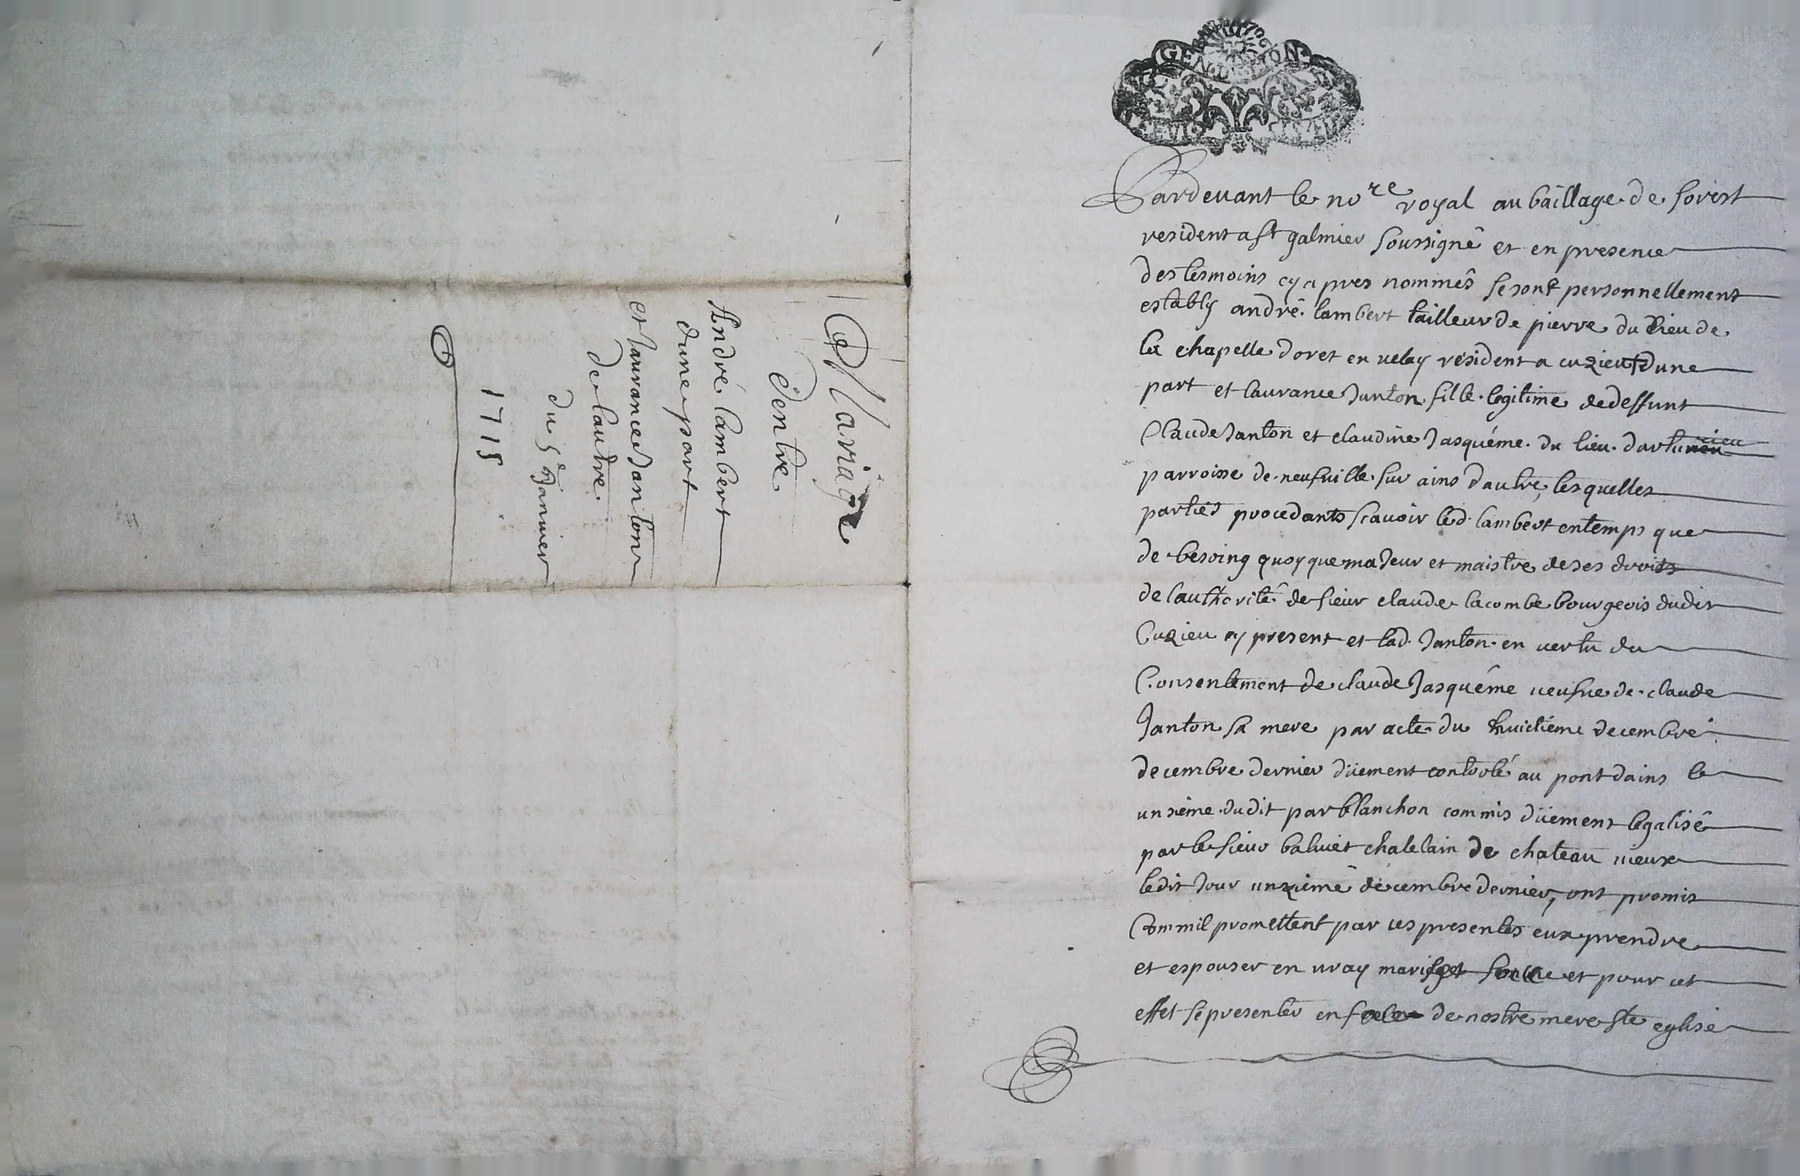 Mariage
Dentre
André lambert
dune part
et laurance Janton
de lautre.
du 5e Janvier
1715
GEN
Pardevant le nore royal au baillage de forest
resident a st galmier soussigné et en presence
des tesmoins cy apres nommés se sont personnellement
estably andré lambert tailleur de pierre du lieu de
la chapelle doret en velay résident a cuzieu dune
part et laurance Janton fille legitime de deffunt
Claude Janton et claudine Jasquéme du lieu dartu rieu
parroisse de neufville sur ains dautre, lesquelles
parties procedants scavoir led. lambert en temps que
de besoing quoy que maJeur et maistre de ses droits
de lauthorité de sieur claude lacombe bourgeois dudit
Cuzieu cy present et lad. Janton en vertu du
Consentement de claude Jasquéme veufve de claude
Janton sa mere par acte du huictiéme decembre
decembre dernier düement controlé au pont dains le
unsiéme dudit par blanchon commis düement legalisé
par le sieur balivet chatelain de chateau vieux
ledit Jour unziéme decembre dernier, ont promis
Comm il promettent par ces presentes eux prendre
et espouser en vray mariage et pour cet
effet se presenter en face de nostre mere ste eglise